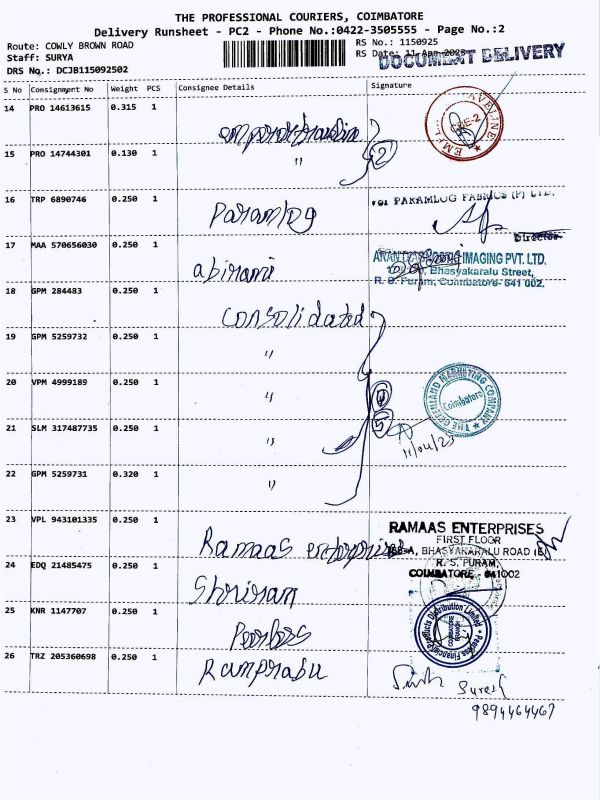 THE PROFESSIONAL COURIERS, COIMBATORE
Delivery Runsheet - PC2 - Phone No.:0422-3505555 - Page No.:2
Route: COWLY BROWN ROAD
RS No.: 1150925
Staff: SURYA
RS Date: 11-Apr-2025
DOCUMENT DELIVERY
DRS No.: DCJB115092502
S No Consignment No Weight PCS Consignee Details Signature
14 PRO 14613615 0.315 1
15 PRO 14744301 0.130 1 " 2
16 TRP 6890746 0.250 1 Paramlog
PARAMLOG FABRICS (P) LTD.
Director
17 MAA 570656030 0.250 1 abirami
IMAGING PVT. LTD.
Bhasyakaralu Street,
R. S. Puram, Coimbatore- 641 002.
18 GPM 284483 0.250 1 Consolidated
19 GPM 5259732 0.250 1 "
20 VPM 4999189 0.250 1 "
THE GREENLAND MARKETING COMPANY
Coimbatore
21 SLM 317487735 0.250 1 " 5
11/04/25
22 GPM 5259731 0.320 1 "
23 VPL 943101335 0.250 1 Ramaas enterprises
RAMAAS ENTERPRISES
FIRST FLOOR
BHASYAKARALU ROAD (E)
R. S. PURAM,
COIMBATORE - 641002
24 EDQ 21485475 0.250 1 Shriram
25 KNR 1147707 0.250 1 Peerless
Peerless Financial Products Distribution Limited
COIMBATORE BRANCH
26 TRZ 205360698 0.250 1 Ramprabu
Suresh
9894464467